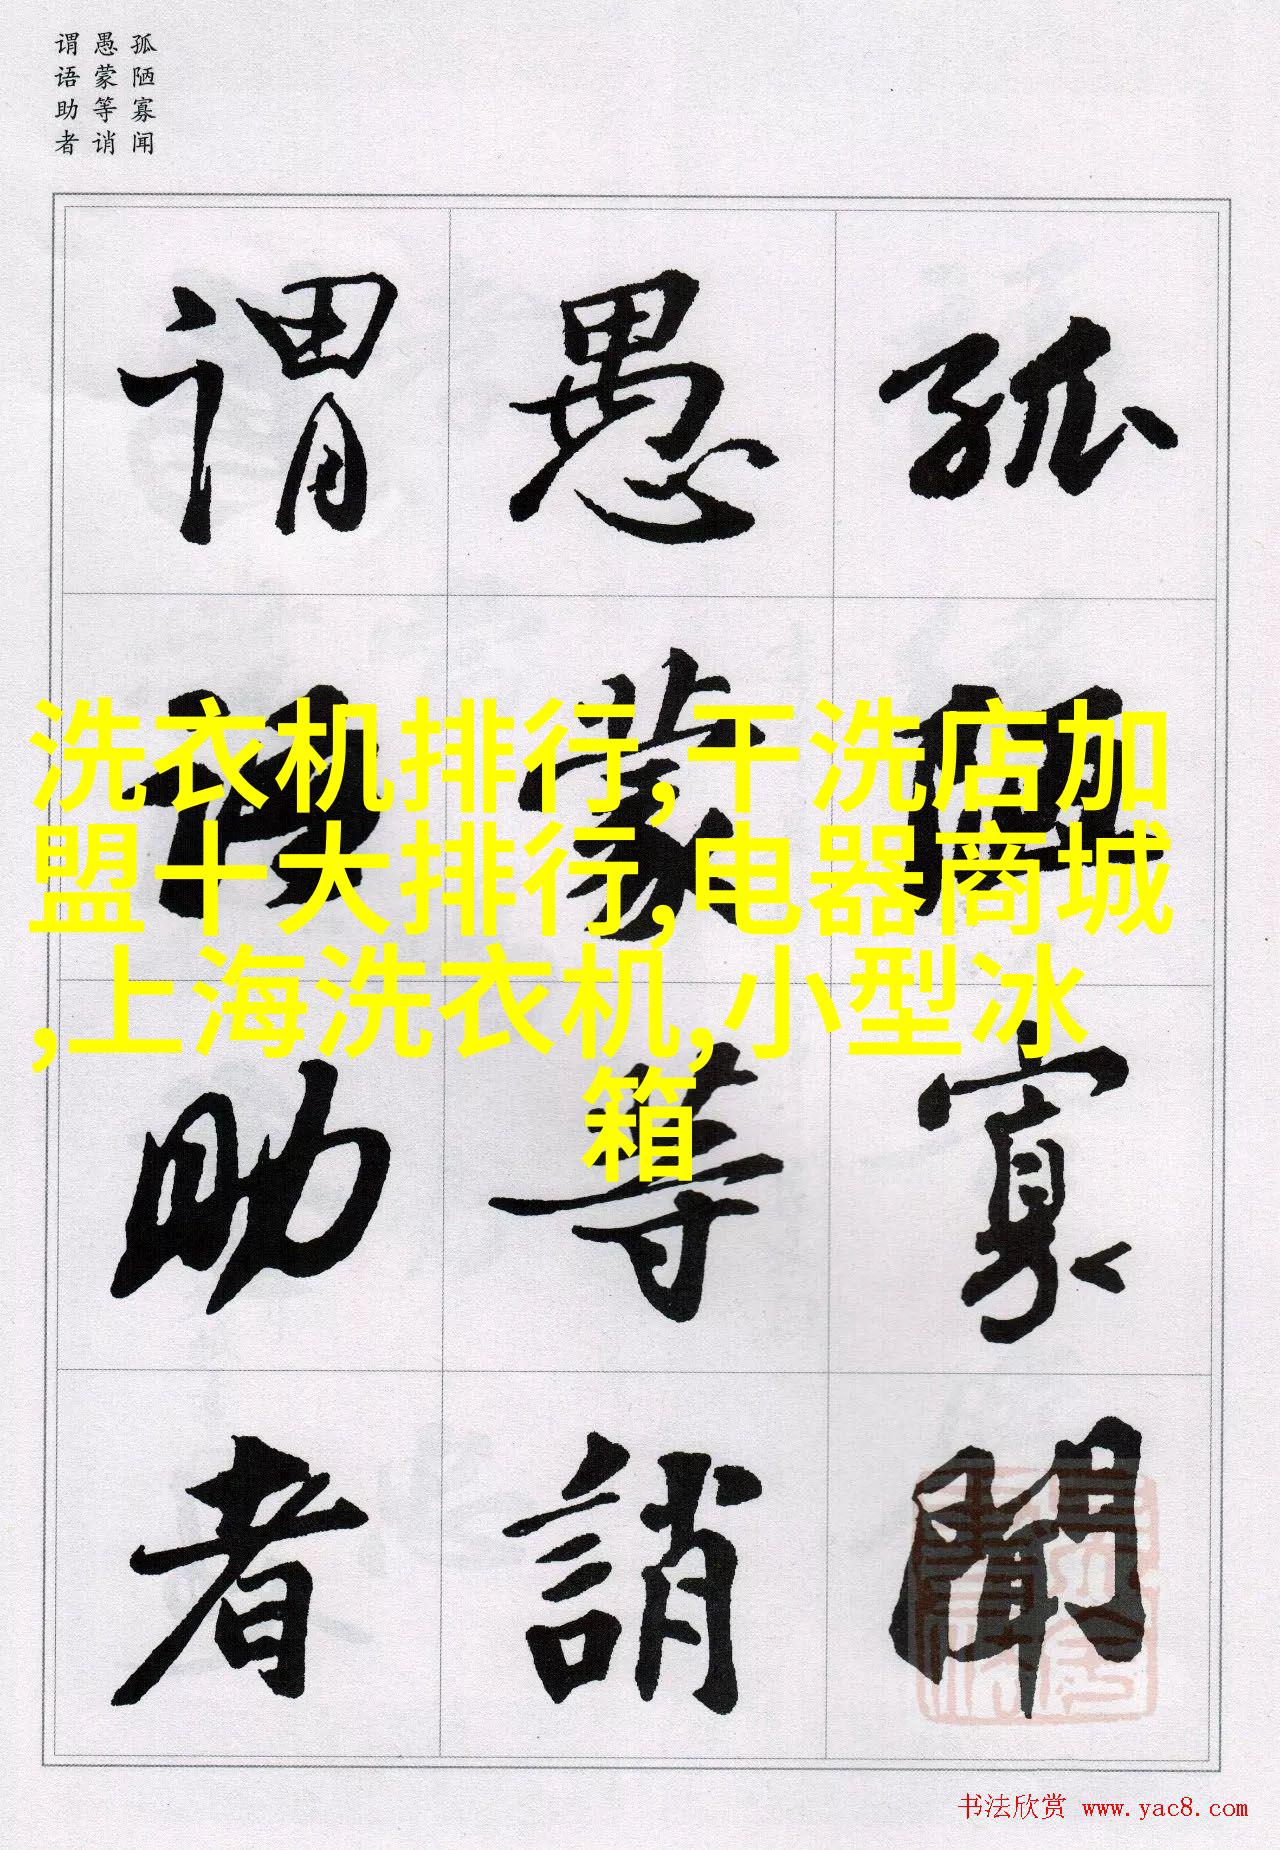 孤陋寡闻
愚蒙等诮
谓语助者
孤
陋
寡
闻
愚
蒙
等
誚
谓
语
助
者
洗衣机排行,干洗店加
盟十大排行,电器商城
,上海洗衣机,小型冰
箱
书法欣赏 www.yac8.com